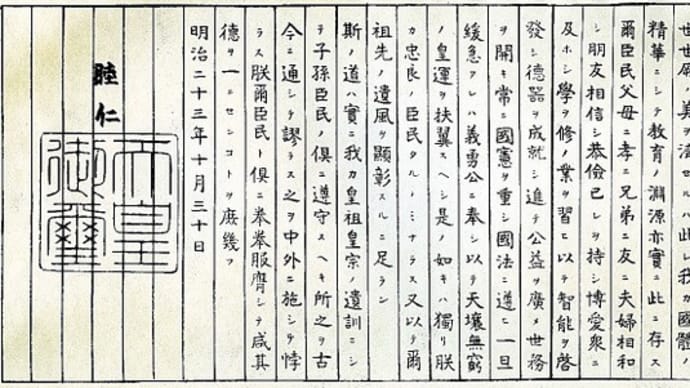 世世厥ノ美ヲ濟セルハ此レ我カ國體ノ
精華ニシテ教育ノ淵源亦實ニ此ニ存ス
爾臣民父母ニ孝ニ兄弟ニ友ニ夫婦相和
シ朋友相信シ恭儉己レヲ持シ博愛衆ニ
及ホシ學ヲ修メ業ヲ習ヒ以テ智能ヲ啓
發シ德器ヲ成就シ進テ公益ヲ廣メ世務
ヲ開キ常ニ國憲ヲ重シ國法ニ遵ヒ一旦
緩急アレハ義勇公ニ奉シ以テ天壤無窮
ノ皇運ヲ扶翼スヘシ是ノ如キハ獨リ朕
カ忠良ノ臣民タルノミナラス又以テ爾
祖先ノ遺風ヲ顯彰スルニ足ラン
斯ノ道ハ實ニ我カ皇祖皇宗ノ遺訓ニシ
テ子孫臣民ノ俱ニ遵守スヘキ所之ヲ古
今ニ通シテ謬ラス之ヲ中外ニ施シテ悖
ラス朕爾臣民ト俱ニ拳拳服膺シテ咸其
德ヲ一ニセンコトヲ庶幾フ
明治二十三年十月三十日
睦仁
天皇
御璽